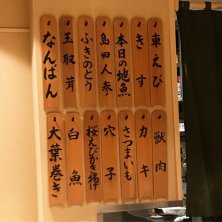 車えび
きす
本日の地魚
島田人参
ふきのとう
玉取茸
なんばん
獣肉
カキ
さつまいも
穴子
桜えびかき揚げ
白魚
大葉巻き